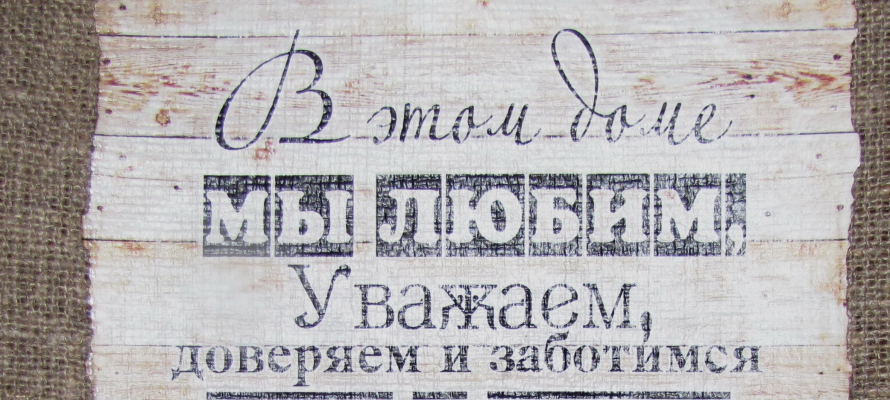 В этом доме
мы любим,
Уважаем,
доверяем и заботимся